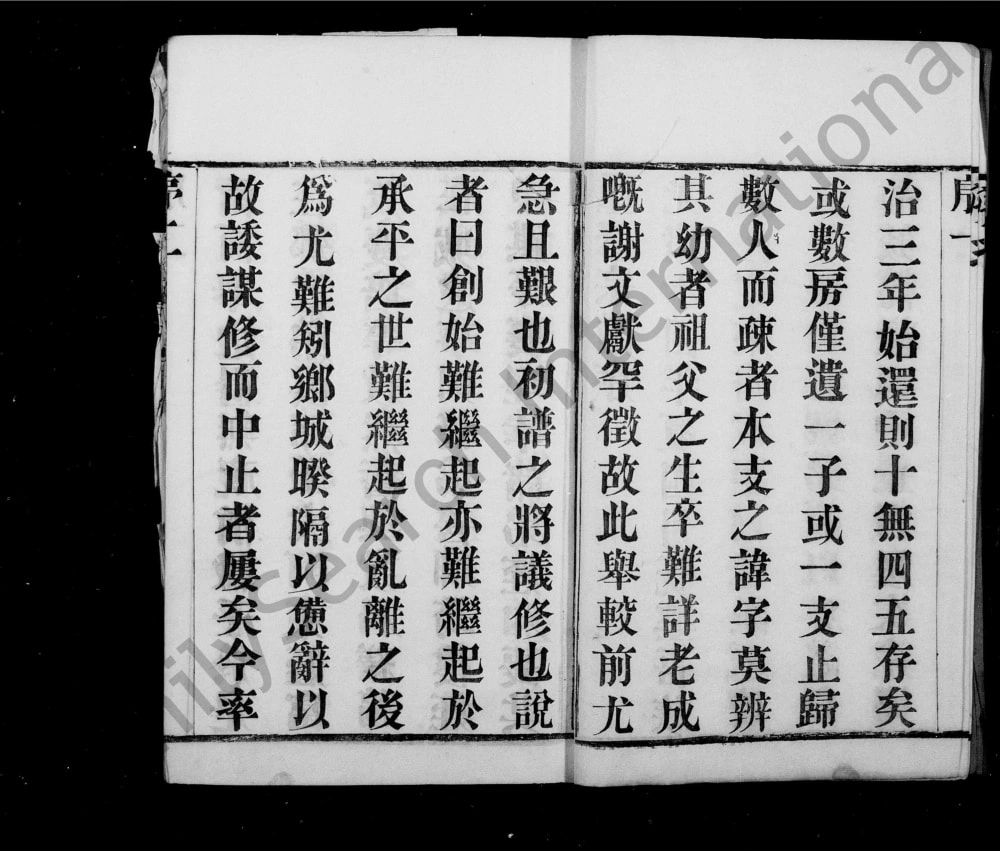 序一
治三年始還則十無四五存矣
或數房僅遺一子或一支止歸
數人而疎者本支之諱字莫辨
其幼者祖父之生卒難詳老成
嘅謝文獻罕徵故此舉較前尤
急且艱也初譜之將議修也說
者曰創始難繼起亦難繼起於
承平之世難繼起於亂離之後
爲尤難矧鄉城暌隔以憊辭以
故諉謀修而中止者屢矣今率
序二
ily Search International